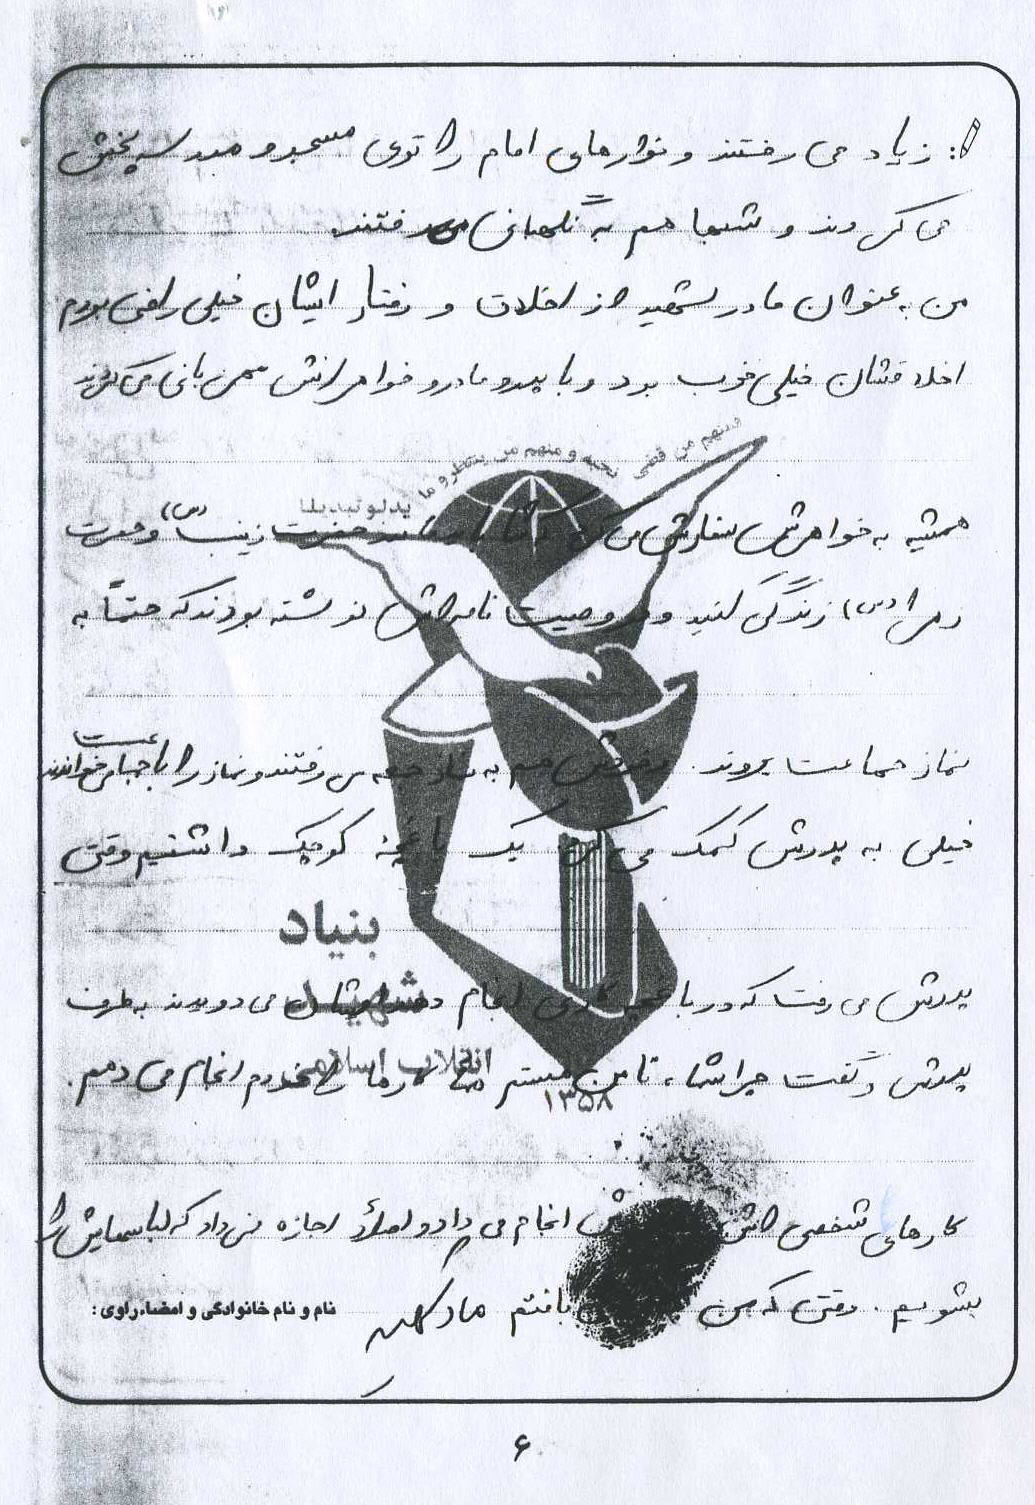 : زیاد می رفتند و نوارهای امام را توی مسجد و مدرسه پخش
می کردند و شبها هم به نگهبانی می رفتند.
من به عنوان مادر شهید از اخلاق و رفتار ایشان خیلی راضی بودم
اخلاقشان خیلی خوب بود و با پدر و مادر و خواهرانش مهربانی می کردند
ومنهم من قضی نحبه و منهم من ینتظر و ما بدلوا تبدیلا
همیشه به خواهرش سفارش می کرد که شما باید مانند حضرت زینب (س) و حضرت
زهرا (س) زندگی کنید و در وصیت نامه اش نوشته بودند که حتماً به
نماز جماعت بروند. خودش هم به نماز جمعه می رفتند و نماز را با جماعت می خواندند
خیلی به پدرش کمک می کرد یک باغچهٔ کوچک داشتیم وقتی
بنیاد
پدرش می رفت که در باغچه کاری انجام دهد ایشان می دویدند به طرف
شهید
انقلاب اسلامی
پدرش و گفت چرا شما، تا من هستم خودم انجام می دهم.
۱۳۵۸
کارهای شخصی اش انجام می داد و اصلاً اجازه نمی داد که لباسهایش را
بشویم. وقتی که من بافتم مادر
نام و نام خانوادگی و امضاء راوی:
۶